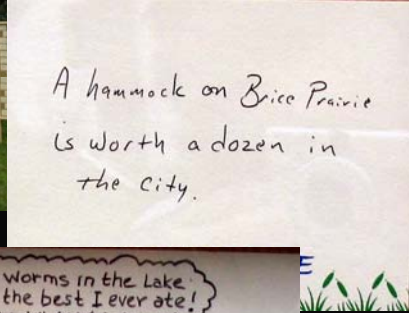 A hammock on Brice Prairie
is worth a dozen in
the city.
E
worms in the Lake
the best I ever ate!